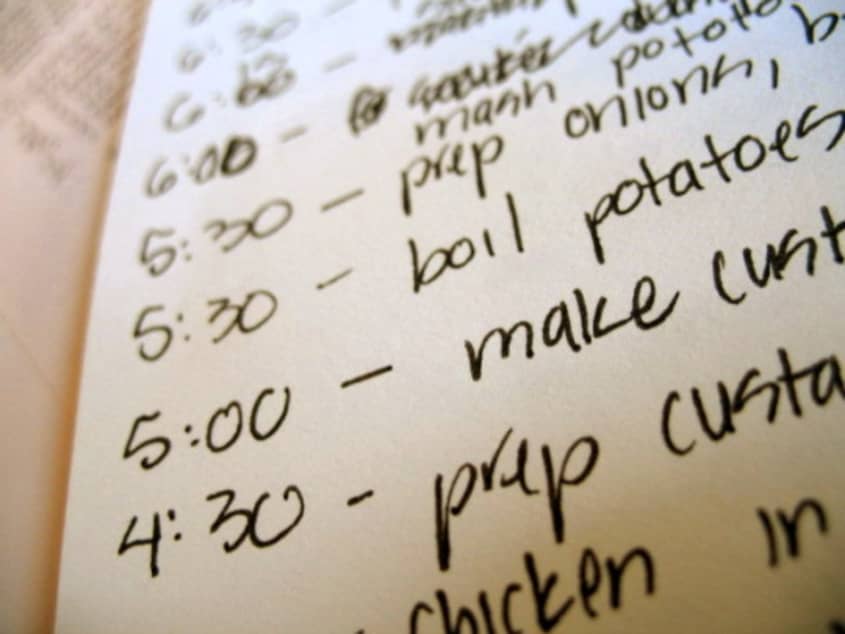 6:30 -
6:
6:00 -
mash potato
5:30 - prep onions, b
5:30 - boil potatoes
5:00 - make cust
4:30 - prep custa
chicken in